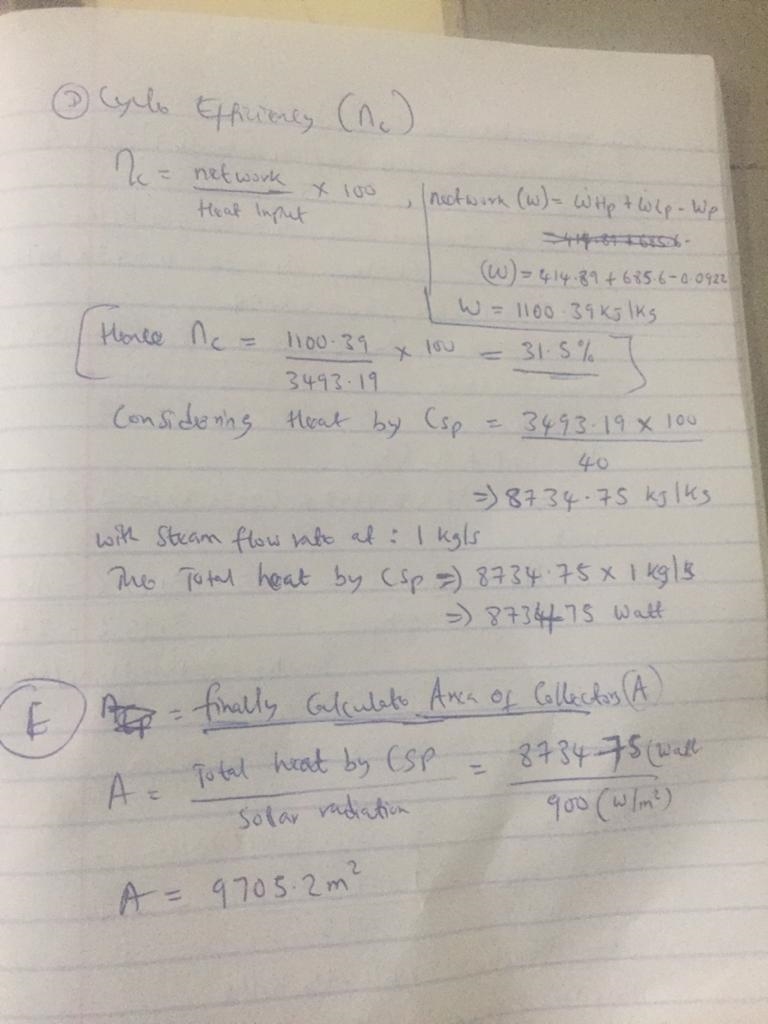 D Cycle Efficiency (ηc)
ηc = network / Heat Input × 100 ,
network (w) = ẆHp + ẆLp - Wp
= 414.89 + 685.6 -
(w) = 414.89 + 685.6 - 0.0922
W = 1100.39 kJ/kg
Hence ηc = 1100.39 / 3493.19 × 100 = 31.5%
Considering Heat by Csp = 3493.19 × 100 / 40
=> 8734.75 kJ/kg
with Steam flow rate at : 1 kg/s
The Total heat by CSP => 8734.75 × 1 kg/s
=> 8734.75 Watt
E = finally Calculate Area of Collectors (A)
A = Total heat by CSP / Solar radiation = 8734.75 (Watt / 900 (W/m²)
A = 9705.2 m²